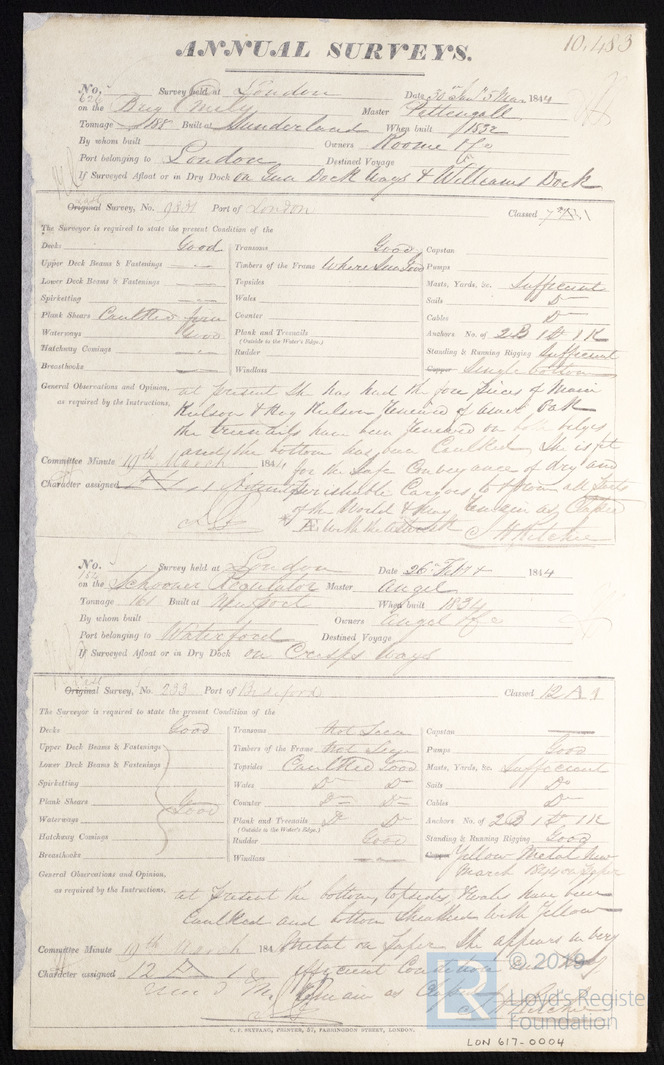 10.483
ANNUAL SURVEYS.
No. 626 Survey held at London Date 30th Jany 5 Mar 1844
on the Brig Emily Master Pettengall
Tonnage 188 Built at Sunderland When built 1832
By whom built Owners Roome & Co
Port belonging to London Destined Voyage
If Surveyed Afloat or in Dry Dock on Gun Dock Ways & Williams Dock
Last
Original Survey, No. 9831 Port of London Classed
The Surveyor is required to state the present Condition of the
Decks Good Transoms Good Capstan
Upper Deck Beams & Fastenings Timbers of the Frame Where Seen Good Pumps
Lower Deck Beams & Fastenings Topsides Masts, Yards, &c. Sufficient
Spirketting Wales Sails Do
Plank Shears Caulked Counter Cables Do
Waterways Good Plank and Treenails Anchors No. of 2B 1St 1K
(Outside to the Water's Edge.)
Hatchway Comings Rudder Standing & Running Rigging Sufficient
Breasthooks Windlass Copper Single bottom
General Observations and Opinion, at present She has had the fore pieces of Main
as required by the Instructions, Keelson & Keelson renewed of Oak
the treenails have been renewed on both bilges
and the bottom has been Caulked, She is fit
Committee Minute 19th March 1844 for the Safe Conveyance of dry and
Character assigned perishable Cargoes to & from all Parts
of the World & may remain as Classed
Æ with the asterisk J H Ritchie
No. Survey held at London Date 26th Feby 4 1844
on the Schooner Regulator Master Angel
Tonnage 161 Built at Newport When built 1834
By whom built Owners Angel & Co
Port belonging to Waterford Destined Voyage
If Surveyed Afloat or in Dry Dock on Crisps Ways
Last
Original Survey, No. 233 Port of Bideford Classed 12 A 1
The Surveyor is required to state the present Condition of the
Decks Good Transoms not Seen Capstan
Upper Deck Beams & Fastenings Timbers of the Frame not Seen Pumps Good
Lower Deck Beams & Fastenings Topsides Caulked Good Masts, Yards, &c. Sufficient
Spirketting Wales Do Do Sails Do
Plank Shears Good Counter Do Do Cables Do
Waterways Plank and Treenails Do Do Anchors No. of 2B 1St 1K
(Outside to the Water's Edge.)
Hatchway Comings Rudder Good Standing & Running Rigging Good
Breasthooks Windlass Copper Yellow Metal New
March 1844 on Paper
General Observations and Opinion,
as required by the Instructions, at present the bottom, topsides & wales have been
Caulked and bottom Sheathed with Yellow
Committee Minute 19th March 184 Metal on Paper She appears in very
Character assigned 12 A 1 efficient Condition and
remain as Classed
J H Ritchie
C. F. SEYFANG, PRINTER, 57, FARRINGDON STREET, LONDON.
LR
© 2019
Lloyd's Registe
Foundation
LON 617-0004